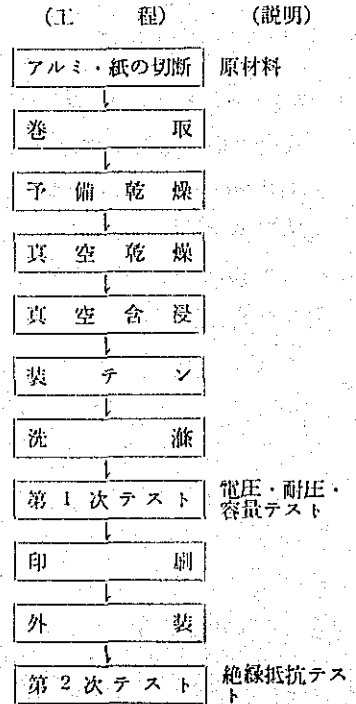 (工 程) (説明)
アルミ・紙の切断 原材料
巻取
予備乾燥
真空乾燥
真空含浸
装テン
洗滌
第1次テスト 電圧・耐圧・
容量テスト
印刷
外装
第2次テスト 絶縁抵抗テス
ト